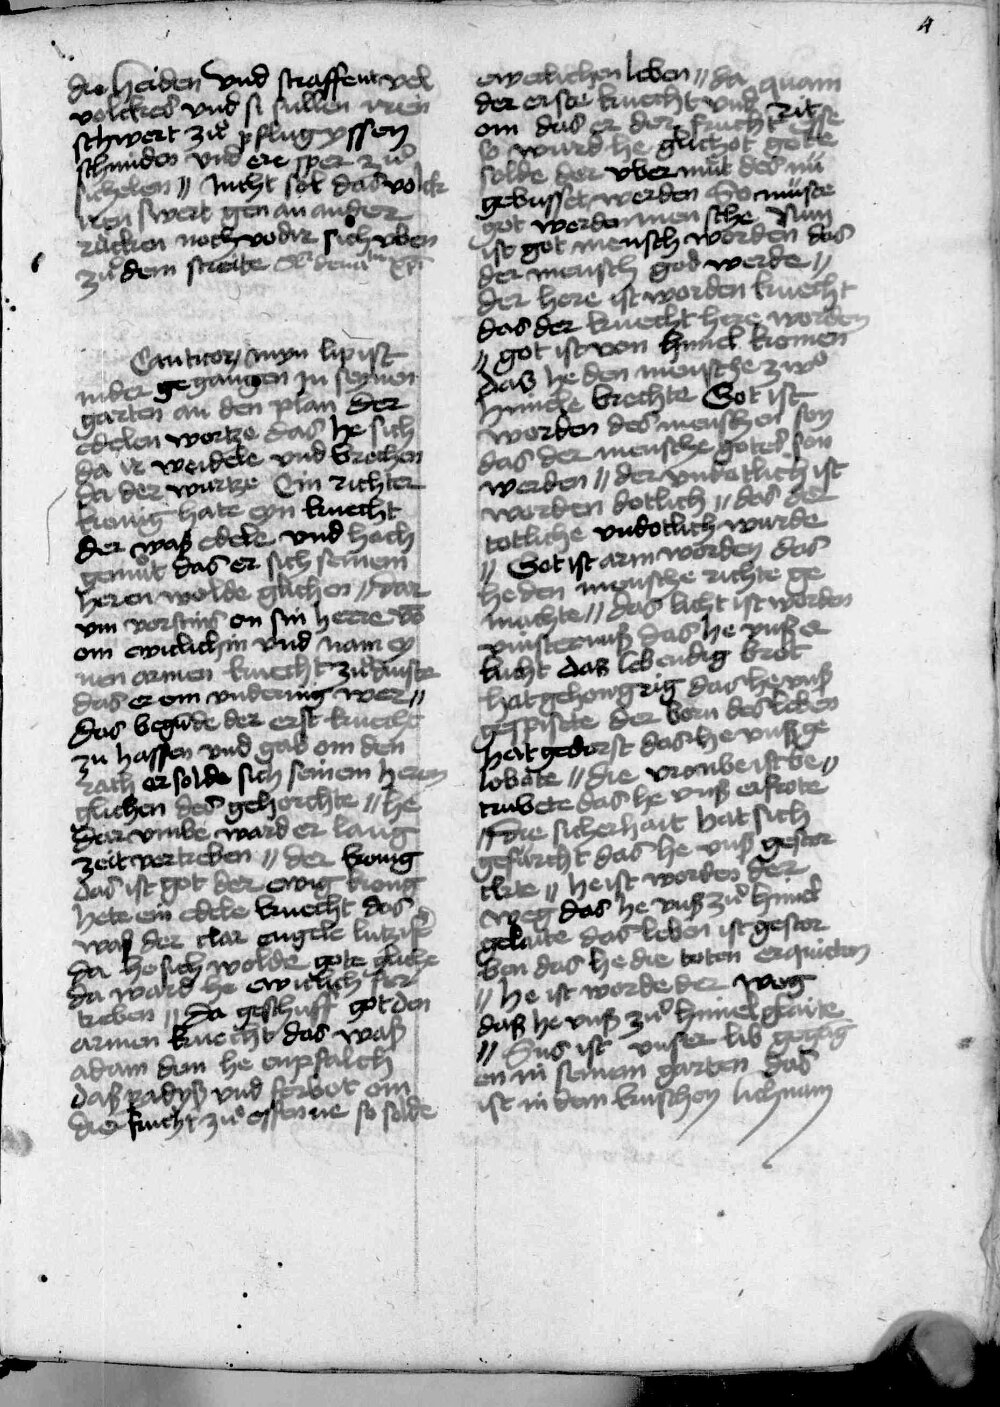 4
die heiden vnd straffent vel
volckes vnd si sullen iren
schwert zuͦ pflugyssen
schmiden vnd ere sper zuͦ
sichelen // nicht sol das volck
iren swert gen an ander
rucken noch vodir sich vben
zuͦ dem streite
Canticorum myn lip ist
nider gegangen in seynen
garten an den plan der
edelen wortze das he sich
da ir weidete vnd brechen
da der wurtze Ein richter
konig hate eyn knecht
der waß edele vnd hoch
gemuͦt das er sich seinem
heren wolde glichen // dar
vm vorstiss en sin herre vō
om ewiclichin vnd nam ey
nen armen knecht zuͦ dinste
das er om vndernig wer //
das begūde der erst knecht
zu hassen vnd gab om den
rath er solde sich seinem heren
glichen des gehorchte // he
darvmbe ward er lang
zeit vertreben // der konig
das ist got der ewig konig
hete ein edele knecht das
waß der clar engele lutzifer
da he sich wolde gote gliche
da ward he ewiclich fer
treben // Da geschuff got den
armen knecht das waß
adam dem he enpfalch
daß padyß vnd ferbot om
die frucht zuͦ essen ne so solde
ewerlichen leben // da quam
der erste knecht vnd rit
om das er der frucht esse
so wurd he glichot gote
solde der vbermuͦt des nū
gebusset werden So muͤste
got werden mensche Nun
ist got mensch worden das
der mensch god werde //
der here ist worden knecht
das der knecht here worden
// got ist von himel komen
daß he den mensche zwͦ
himele brechte Got ist
worden des menschen son
das der mensche gotes son
werden // der vndotlich ist
worden dotlich // das der
totliche vndotlich wurde
// Got ist arm worden das
he den mensche richte ge
machte // das licht ist worden
vinsternuß das he vnß er
lucht daß lebendig brot
hat gehongrig das he vnß
gespisete der born des leben
hat gedorst das he vnß ge
labate // die vroube ist be //
trubete das he vnß erfrote
// die sicherhait hat sich
geforcht das he vnß gester
ckte // he ist worden der
weg das he vnß zuͦ himel
gelaite das leben ist gestor
ben das he die toten erquicken
// he ist worde der weg
daß he vnß zuͦ himel glaite
// Sus ist vnser lib gegāg
en in seinem garten das
ist in dem kuschen lichnam